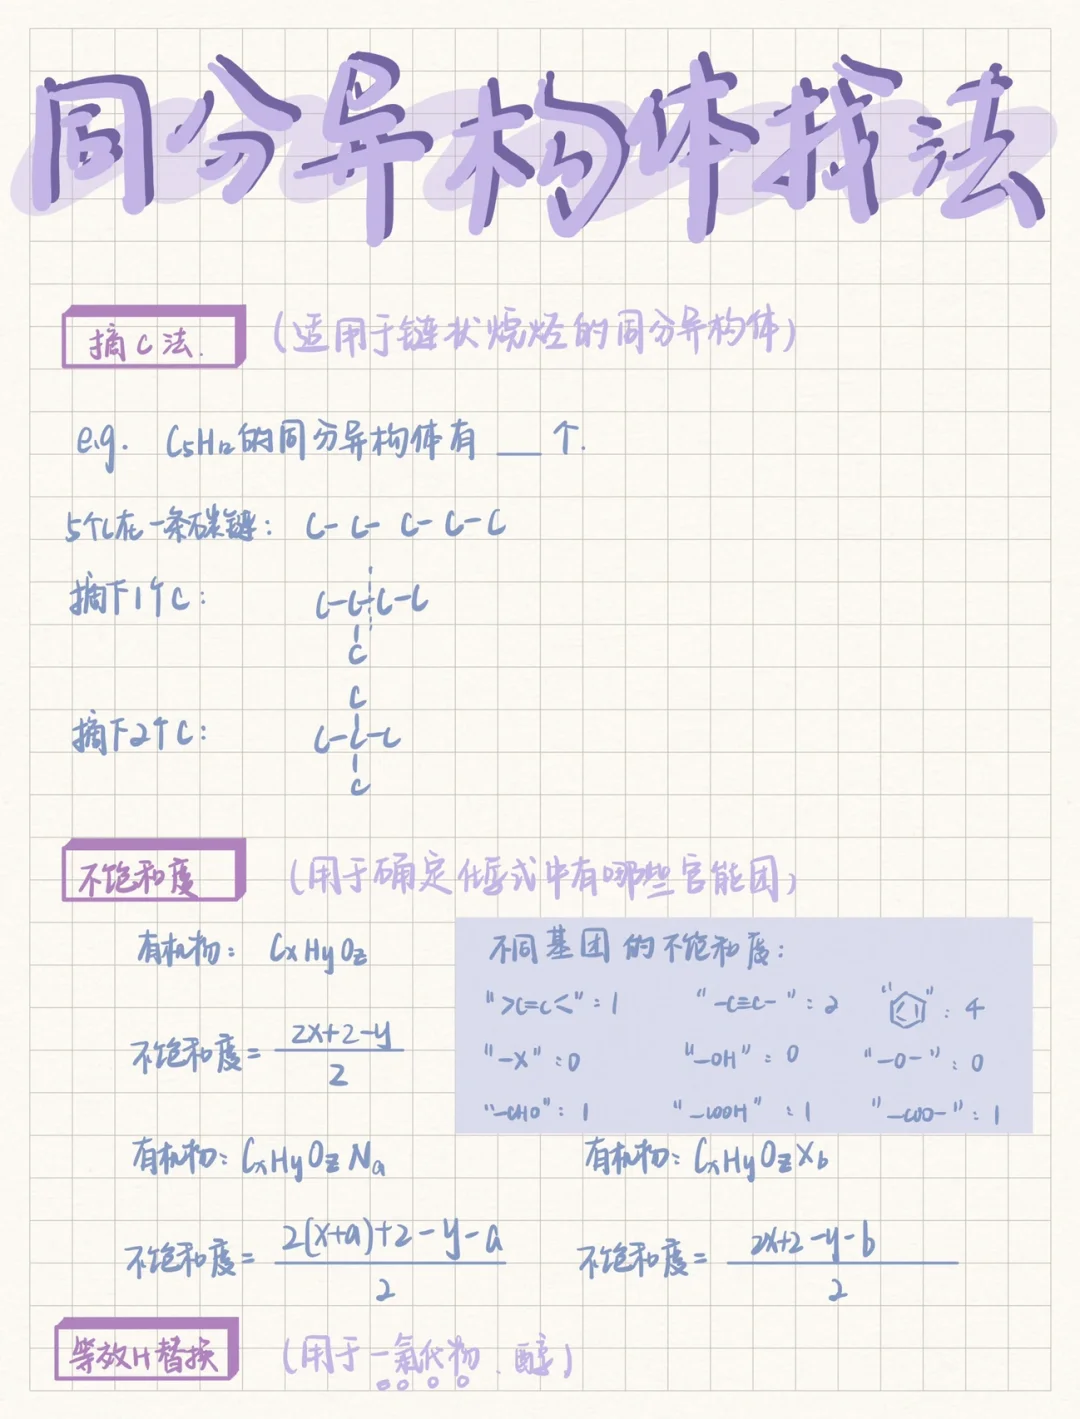 同分异构体找法
摘C法.
(适用于链状烷烃的同分异构体)
e.g. C₅H₁₂的同分异构体有 ___ 个.
5个C在一条碳链: C-C-C-C-C
摘下1个C:
C-C-C-C
C
摘下2个C:
C
C-C-C
C
不饱和度
(用于确定化学式中有哪些官能团)
有机物: CxHyOz
不饱和度 = (2x+2-y)/2
不同基团的不饱和度:
">C=C<":1 "-C≡C-":2 "⌬":4
"-X":0 "-OH":0 "-O-":0
"-CHO":1 "-COOH":1 "-COO-":1
有机物: CxHyOzNa
不饱和度 = (2(x+a)+2-y-a)/2
有机物: CxHyOzXb
不饱和度 = (2x+2-y-b)/2
等效H替换
(用于一氯代物、醇)